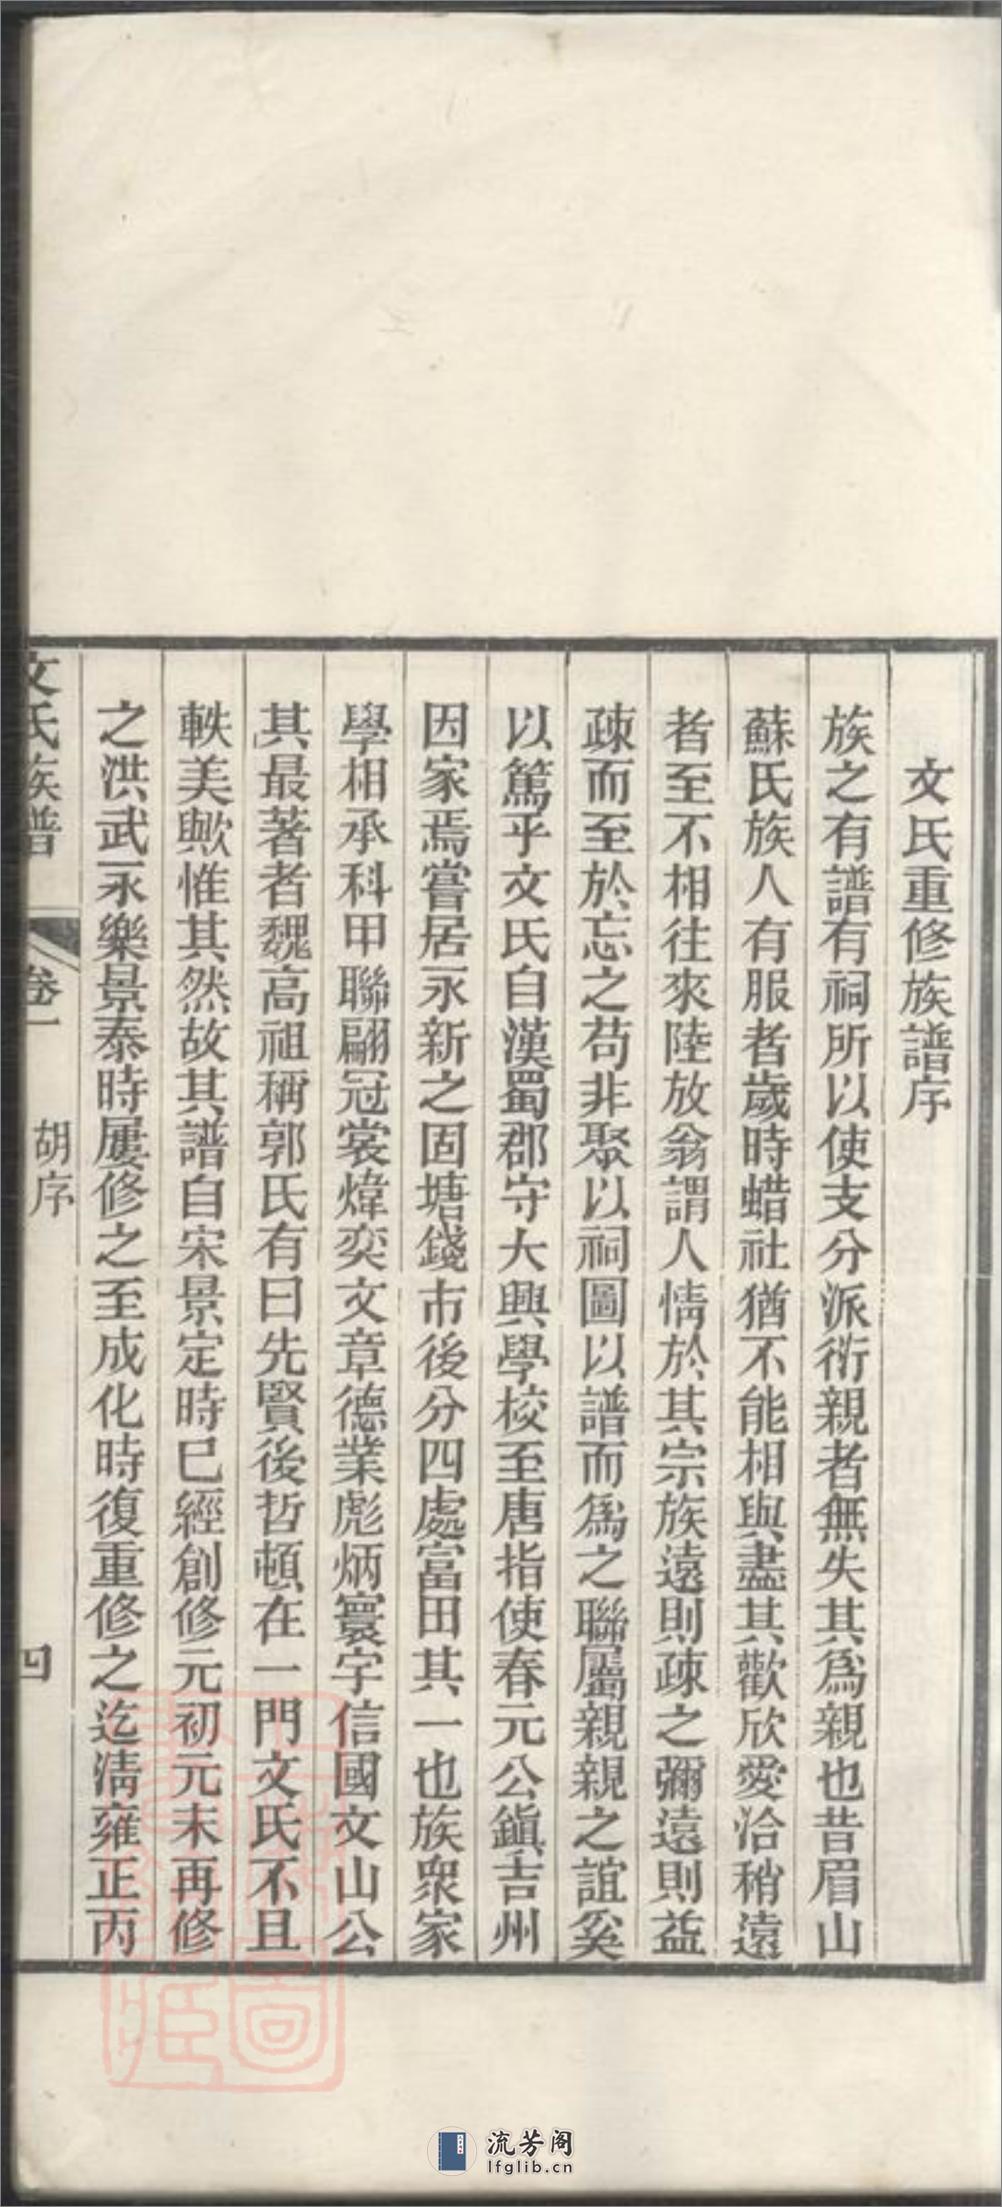 文氏重修族譜序
族之有譜有祠所以使支分派衍親者無失其爲親也昔眉山
蘇氏族人有服者歲時蜡社猶不能相與盡其歡欣愛洽稍遠
者至不相往來陸放翁謂人情於其宗族遠則疎之彌遠則益
疎而至於忘之苟非聚以祠圖以譜而爲之聯屬親親之誼奚
以篤乎文氏自漢蜀郡守大興學校至唐指使春元公鎭吉州
因家焉嘗居永新之固塘錢市後分四處富田其一也族衆家
學相承科甲聯翩冠裳煒奕文章德業彪炳寰宇信國文山公
其最著者魏高祖稱郭氏有曰先賢後哲頓在一門文氏不且
軼美歟惟其然故其譜自宋景定時已經創修元初元末再修
之洪武永樂景泰時屢修之至成化時復重修之迄淸雍正丙
文氏族譜 卷一 胡序 四
流芳阁
lfglib.cn